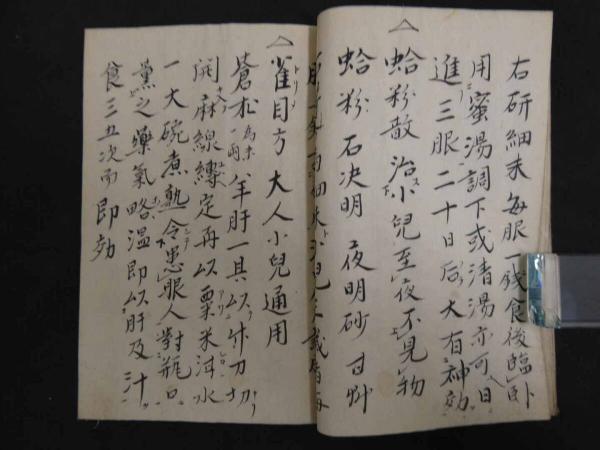 右研細末每服一錢食後臨卧
用蜜湯調下或清湯亦可日
進三服二十日后大有神効
蛤粉散治小兒至夜不見物
蛤粉 石决明 夜明砂 甘艸
雀目方 大人小兒通用
トリメ
蒼朮為末一兩 羊肝一具以竹刀切
開麻線縛定再以粟米泔水
一大碗煮熟令患眼人對瓶口
薰之藥氣略温即以肝及汁
食三五次而即効